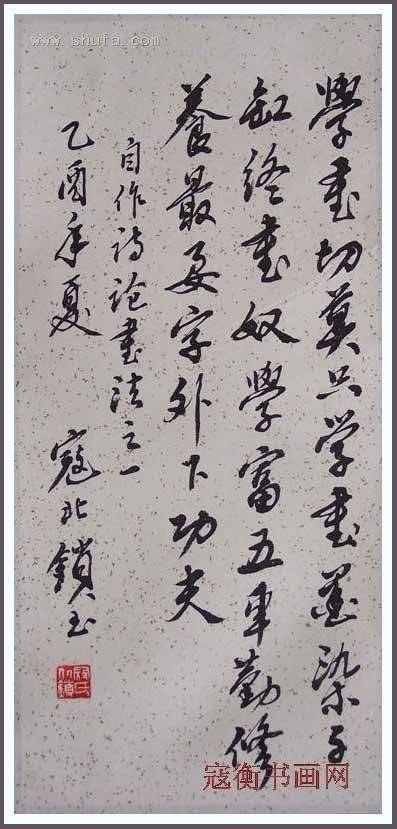 www.shufa.com
學書切莫只学書墨染千
缸終書奴學富五車勤修
養最要字外下功夫
自作詩論書法之一
乙酉年夏 寇北鎖书
寇衡书画网